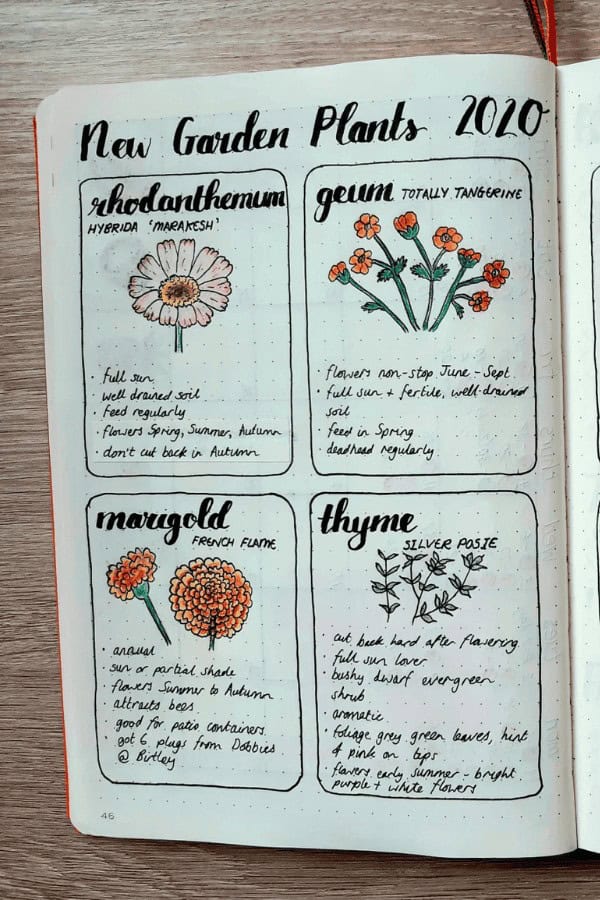 New Garden Plants 2020
rhodanthemum
HYBRIDA 'MARAKESH'
· full sun
· well drained soil
· feed regularly
· flowers Spring, Summer, Autumn
· don't cut back in Autumn
geum TOTALLY TANGERINE
· flowers non-stop June - Sept
· full sun + fertile, well-drained
soil
· feed in Spring
· deadhead regularly
marigold
FRENCH FLAME
· annual
· sun or partial shade
· flowers Summer to Autumn
· attracts bees
· good for patio containers
· got 6 plugs from Dobbies
@ Birtley
thyme
SILVER POSIE
· cut back hard after flowering
· full sun lover
· bushy dwarf evergreen
shrub
· aromatic
· foliage grey green leaves, hint
of pink on tips
· flowers early summer - bright
purple + white flowers
46